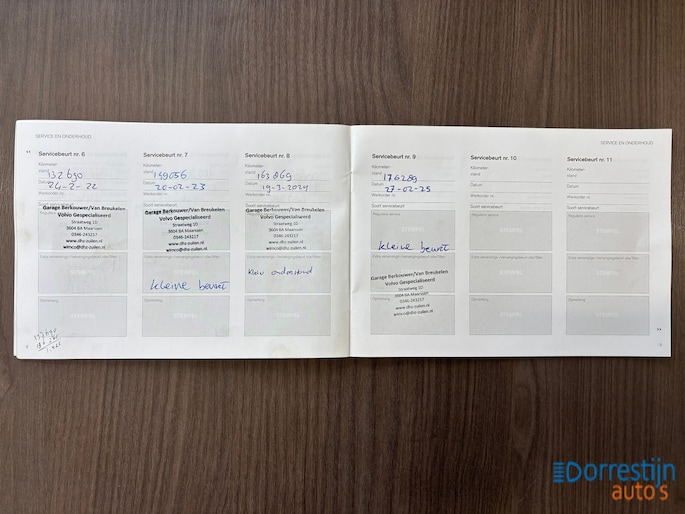 SERVICE EN ONDERHOUD
Servicebeurt nr. 6
Kilometer-
stand
132690
Datum
24-2-22
Werkorder nr.
Soort servicebeurt
Garage Berkouwer/Van Breukelen
Volvo Gespecialiseerd
Straatweg 10
3604 BA Maarssen
0346-243217
www.dhs-zuilen.nl
wimco@dhs-zuilen.nl
STEMPEL
Opmerking
STEMPEL
Servicebeurt nr. 7
Kilometer-
stand
Datum
20-02-23
Werkorder nr.
Soort servicebeurt
Garage Berkouwer/Van Breukelen
Volvo Gespecialiseerd
Straatweg 10
3604 BA Maarssen
0346-243217
www.dhs-zuilen.nl
wimco@dhs-zuilen.nl
STEMPEL
kleine beurt
Opmerking
STEMPEL
Servicebeurt nr. 8
Kilometer-
stand
163869
Datum
19-3-2024
Werkorder nr.
Soort servicebeurt
Garage Berkouwer/Van Breukelen
Volvo Gespecialiseerd
Straatweg 10
3604 BA Maarssen
0346-243217
www.dhs-zuilen.nl
wimco@dhs-zuilen.nl
STEMPEL
Klein onderhoud
Opmerking
STEMPEL
SERVICE EN ONDERHOUD
Servicebeurt nr. 9
Kilometer-
stand
176289
Datum
27-02-25
Werkorder nr.
Soort servicebeurt
Reguliere service
kleine beurt
Garage Berkouwer/Van Breukelen
Volvo Gespecialiseerd
Straatweg 10
3604 BA Maarssen
0346-243217
www.dhs-zuilen.nl
wimco@dhs-zuilen.nl
Opmerking
Servicebeurt nr. 10
Kilometer-
stand
Datum
Werkorder nr.
Soort servicebeurt
Reguliere service
STEMPEL
STEMPEL
Opmerking
STEMPEL
Servicebeurt nr. 11
Kilometer-
stand
Datum
Werkorder nr.
Soort servicebeurt
Reguliere service
STEMPEL
STEMPEL
Opmerking
STEMPEL
Dorrestijn
auto's